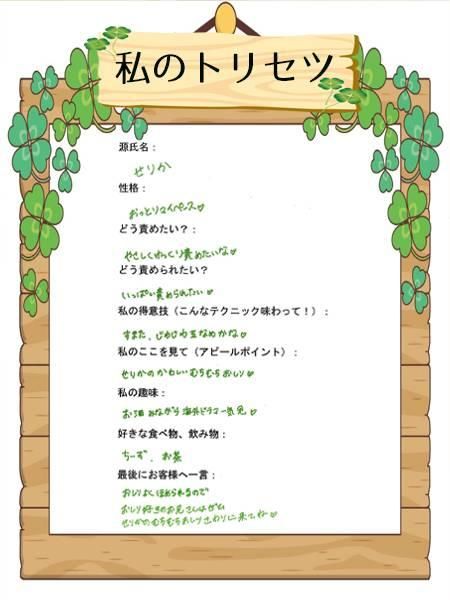 私のトリセツ
源氏名：
せりか
性格：
おっとりマイペース♡
どう責めたい？：
やさしくゆっくり責めたいな♡
どう責められたい？
いっぱい責められたい♡
私の得意技（こんなテクニック味わって！）：
すまた、じわじわ玉なめかな♡
私のここを見て（アピールポイント）：
せりかのかわいいむちむちおしり♡
私の趣味：
お酒みながら海外ドラマ一気見♡
好きな食べ物、飲み物：
ちーず、お茶
最後にお客様へ一言：
おしりよくほめられるので
おしり好きのお兄さんはぜひ
せりかのむちむちおしりさわりに来てね♡